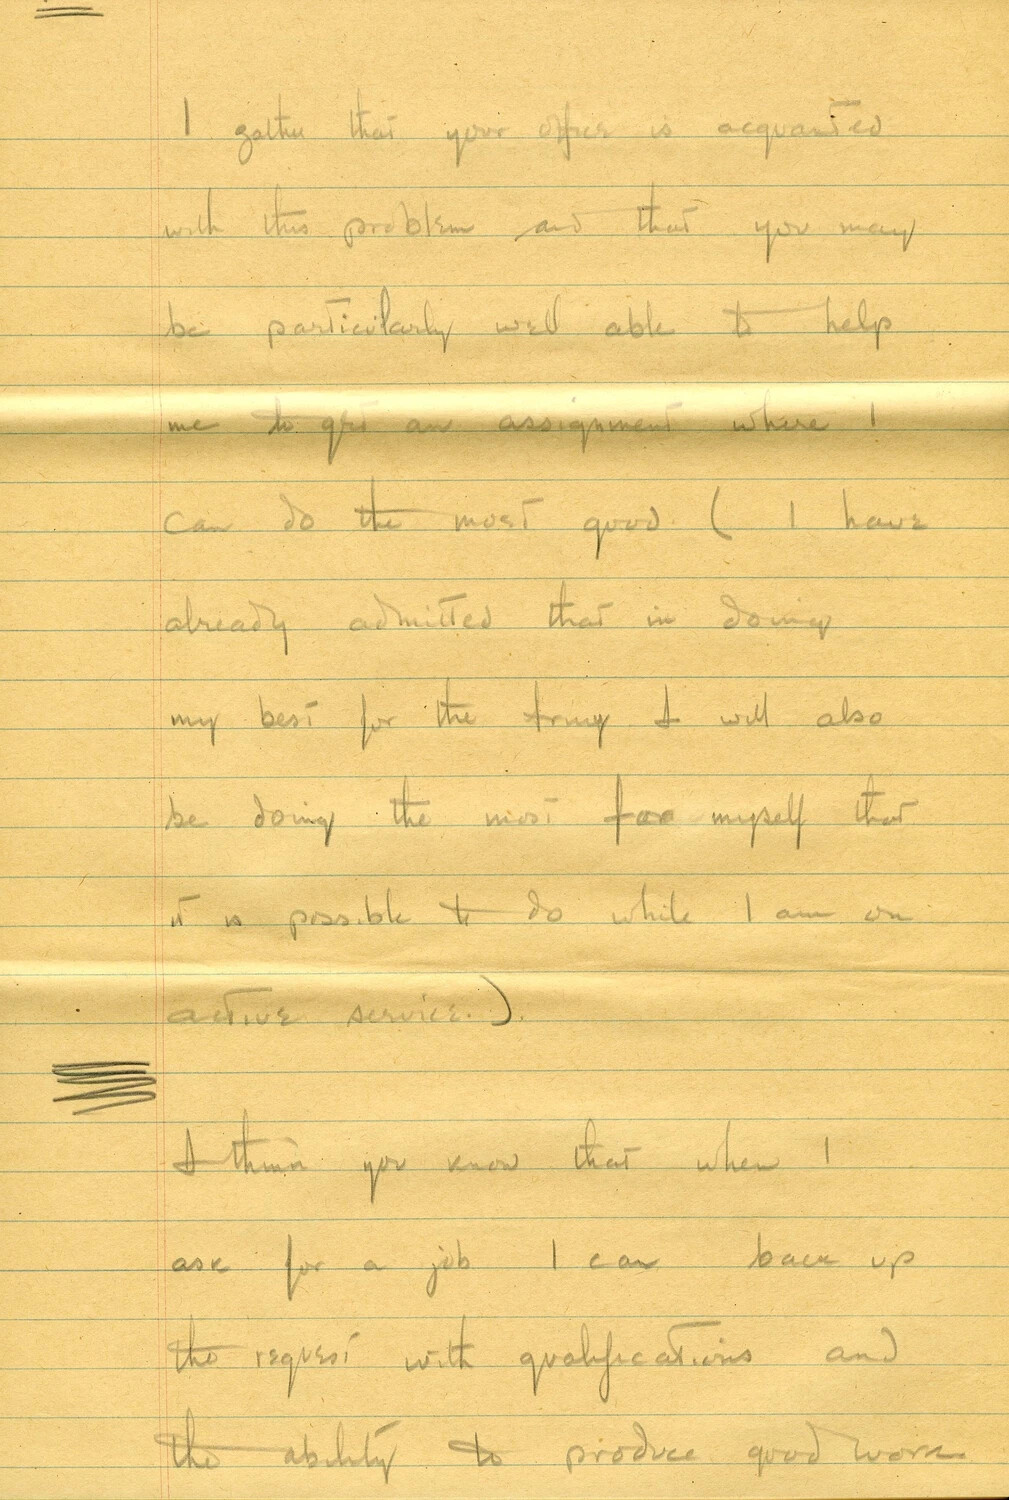 I gather that your office is acquanted
with this problem and that you may
be particularly well able to help
me to get an assignment where I
can do the most good. ( I have
already admitted that in doing
my best for the Army I will also
be doing the most for myself that
it is possible to do while I am on
active service.).
I think you know that when I
ask for a job I can back up
the request with qualifications and
the ability to produce good work.